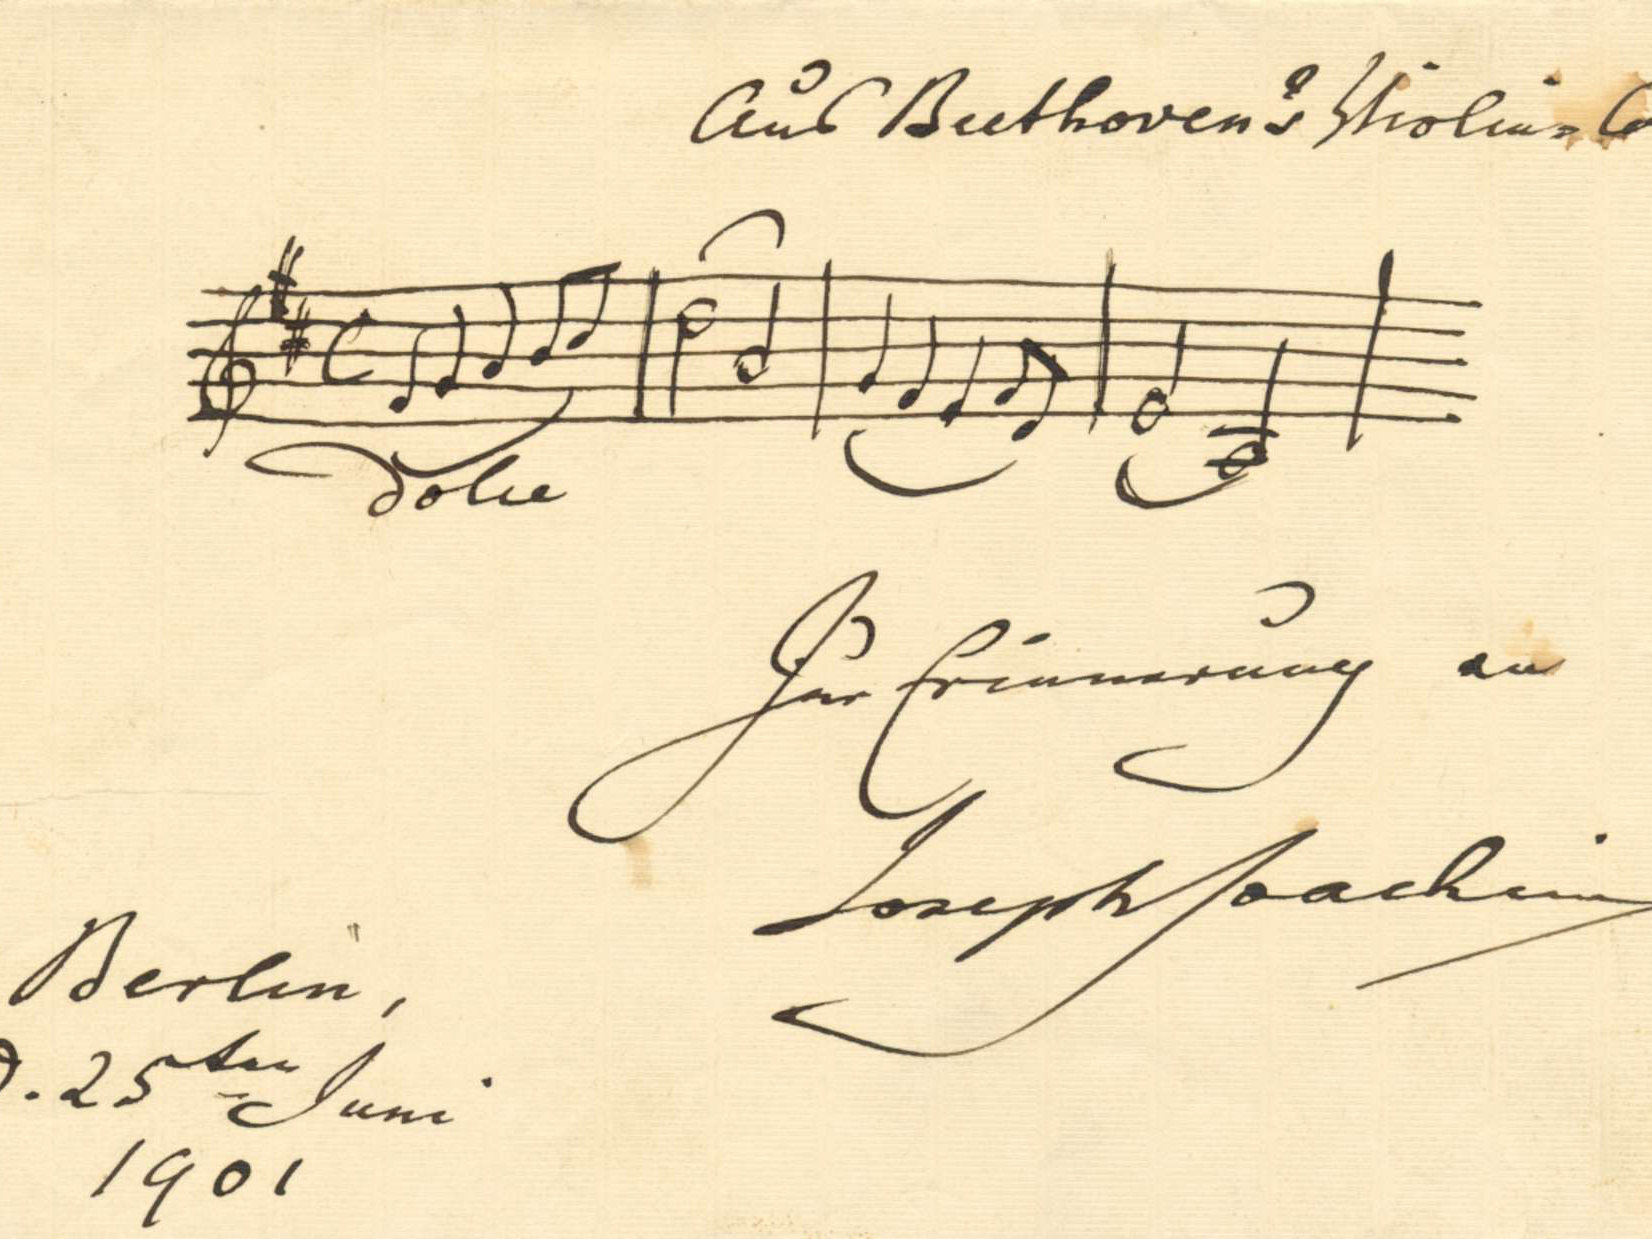 Aus Beethoven's Violin-Co
dolce
Zur Erinnerung an
Joseph Joachim
Berlin,
d. 25ten Juni
1901